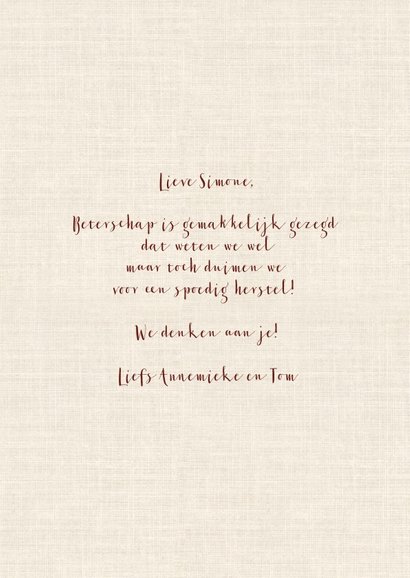 Lieve Simone,
Beterschap is gemakkelijk gezegd
dat weten we wel
maar toch duimen we
voor een spoedig herstel!
We denken aan je!
Liefs Annemieke en Tom